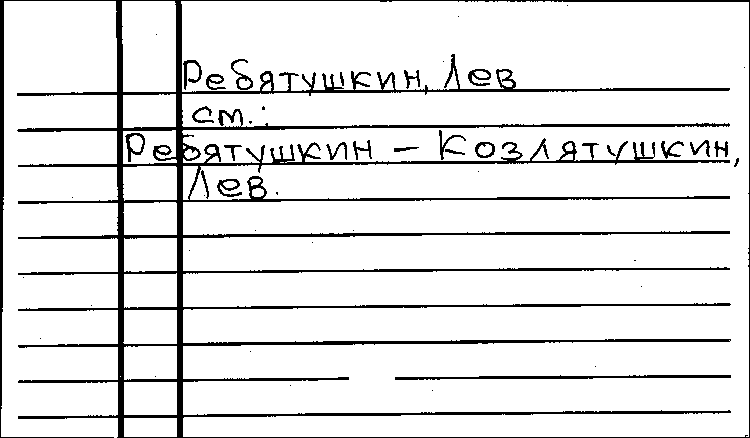 Ребятушкин, Лев
см.:
Ребятушкин – Козлятушкин,
Лев.